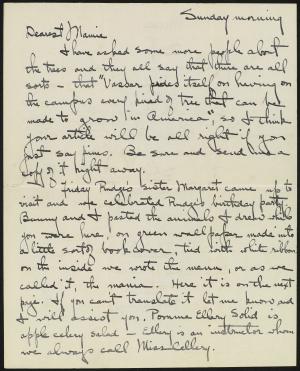 Sunday morning
Dearest Mamie
I have asked some more people about
the trees and they all say that there are all
sorts - that "Vassar prides itself on having on
the campus every kind of tree that can be
made to grow in America", so I think
your article will be all right if you
just say pines. Be sure and send me a
copy of it right away.
Friday Pudge's sister Margaret came up to
visit and we celebrated Pudge's birthday party.
Bunny and I pasted the animals I drew while
you were here, on green wall paper made into
a little sort of book cover tied with white ribbon
on the inside we wrote the menu, or as we
called it, the mania. Here it is on the next
page. If you can't translate it let me know and
I will assist you. Pomme Ellery Solid is
apple celery salad - Ellery is an instructor whom
we always call Miss Cellery.